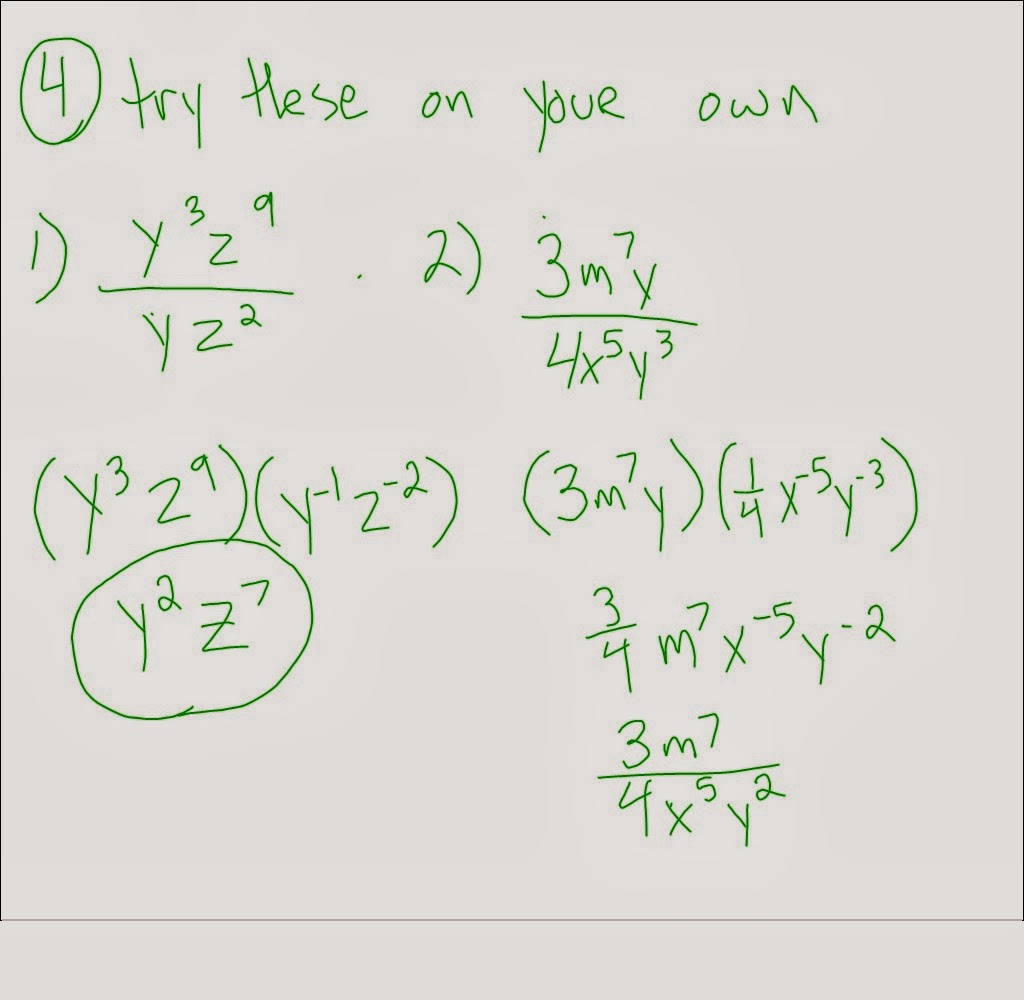 4 try these on your own
1) y³z⁹ / yz² . 2) 3m⁷y / 4x⁵y³
(y³z⁹)(y⁻¹z⁻²) (3m⁷y)(1/4 x⁻⁵y⁻³)
y²z⁷ 3/4 m⁷x⁻⁵y⁻²
3m⁷ / 4x⁵y²